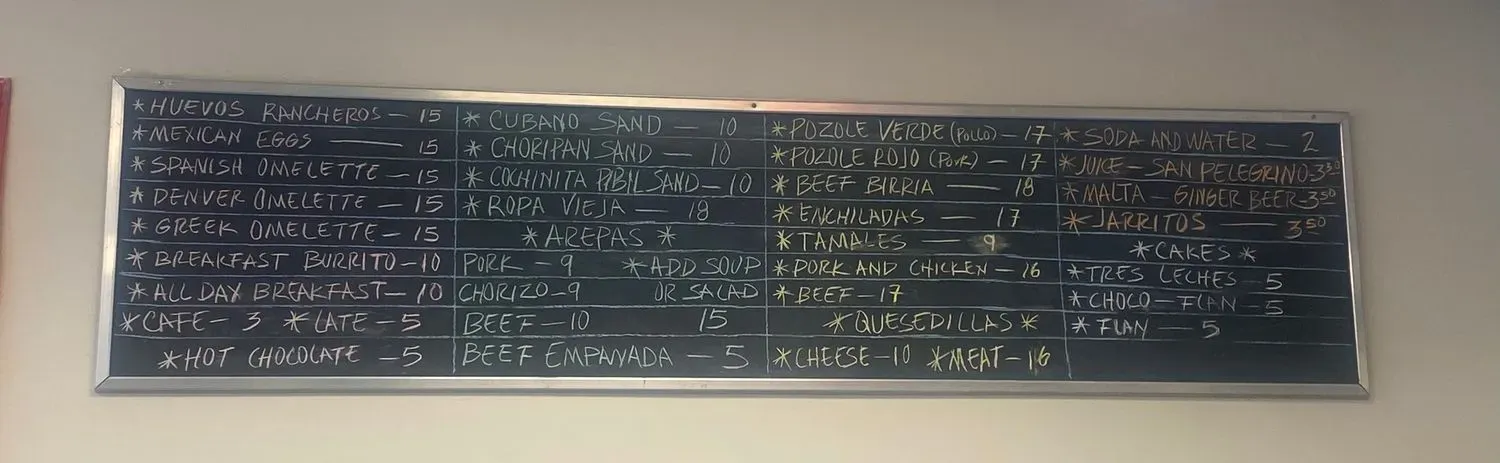 *HUEVOS RANCHEROS - 15
*MEXICAN EGGS - 15
*SPANISH OMELETTE - 15
*DENVER OMELETTE - 15
*GREEK OMELETTE - 15
*BREAKFAST BURRITO - 10
*ALL DAY BREAKFAST - 10
*CAFE - 3 *LATE - 5
*HOT CHOCOLATE - 5
*CUBANO SAND - 10
*CHORIPAN SAND - 10
*COCHINITA PIBIL SAND - 10
*ROPA VIEJA - 18
*AREPAS*
PORK - 9 *ADD SOUP
CHORIZO - 9 OR SALAD
BEEF - 10 15
BEEF EMPANADA - 5
*POZOLE VERDE (POLLO) - 17
*POZOLE ROJO (PORK) - 17
*BEEF BIRRIA - 18
*ENCHILADAS - 17
*TAMALES - 9
*PORK AND CHICKEN - 16
*BEEF - 17
*QUESEDILLAS*
*CHEESE - 10 *MEAT - 16
*SODA AND WATER - 2
*JUICE - SAN PELEGRINO - 350
*MALTA - GINGER BEER - 3.50
*JARRITOS - 3 50
*CAKES*
*TRES LECHES - 5
*CHOCO - FLAN - 5
*FLAN - 5